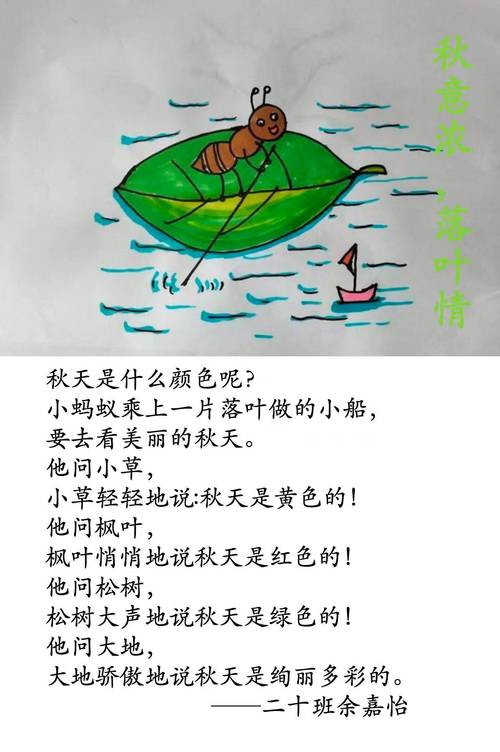 秋意浓,落叶情
秋天是什么颜色呢?
小蚂蚁乘上一片落叶做的小船,
要去看美丽的秋天。
他问小草,
小草轻轻地说:秋天是黄色的!
他问枫叶,
枫叶悄悄地说秋天是红色的!
他问松树,
松树大声地说秋天是绿色的!
他问大地,
大地骄傲地说秋天是绚丽多彩的。
——二十班余嘉怡